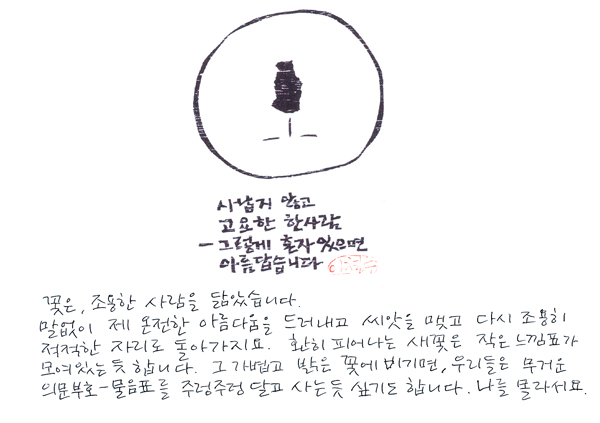 시납지 않고
고요한 한사람
- 그렇게 혼자 있으면
아름답습니다
꽃은, 조용한 사람을 닮았습니다.
말없이 제 온전한 아름다움을 드러내고 씨앗을 맺고 다시 조용히
적적한 자리로 돌아가지요. 환히 피어나는 새꽃은 작은 느낌표가
모여있는 듯 합니다. 그 가볍고 밝은 꽃에 비기면, 우리들은 무거운
의문부호-물음표를 주렁주렁 달고 사는 듯 싶기도 합니다. 나를 몰라서요.